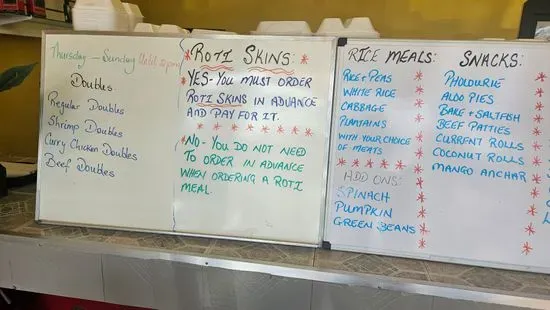 Thursday - Sunday Until 12pm
Doubles
Regular Doubles
Shrimp Doubles
Curry Chicken Doubles
Beef Doubles
ROTI SKINS:
*YES- YOU MUST ORDER
ROTI SKINS IN ADVANCE
AND PAY FOR IT.
* * * * * * * * *
*NO- YOU DO NOT NEED
TO ORDER IN ADVANCE
WHEN ORDERING A ROTI
MEAL.
RICE MEALS:
RICE & PEAS
WHITE RICE
CABBAGE
PLANTAINS
WITH YOUR CHOICE
OF MEATS
* * * * * *
ADD ONS:
SPINACH
PUMPKIN
GREEN BEANS
SNACKS:
PHOLOURIE
ALOO PIES
BAKE & SALTFISH
BEEF PATTIES
CURRENT ROLLS
COCONUT ROLLS
MANGO ANCHAR